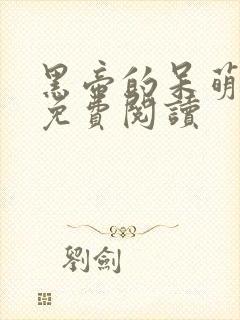 黑帝的呆萌
免費閱讀
劉劍